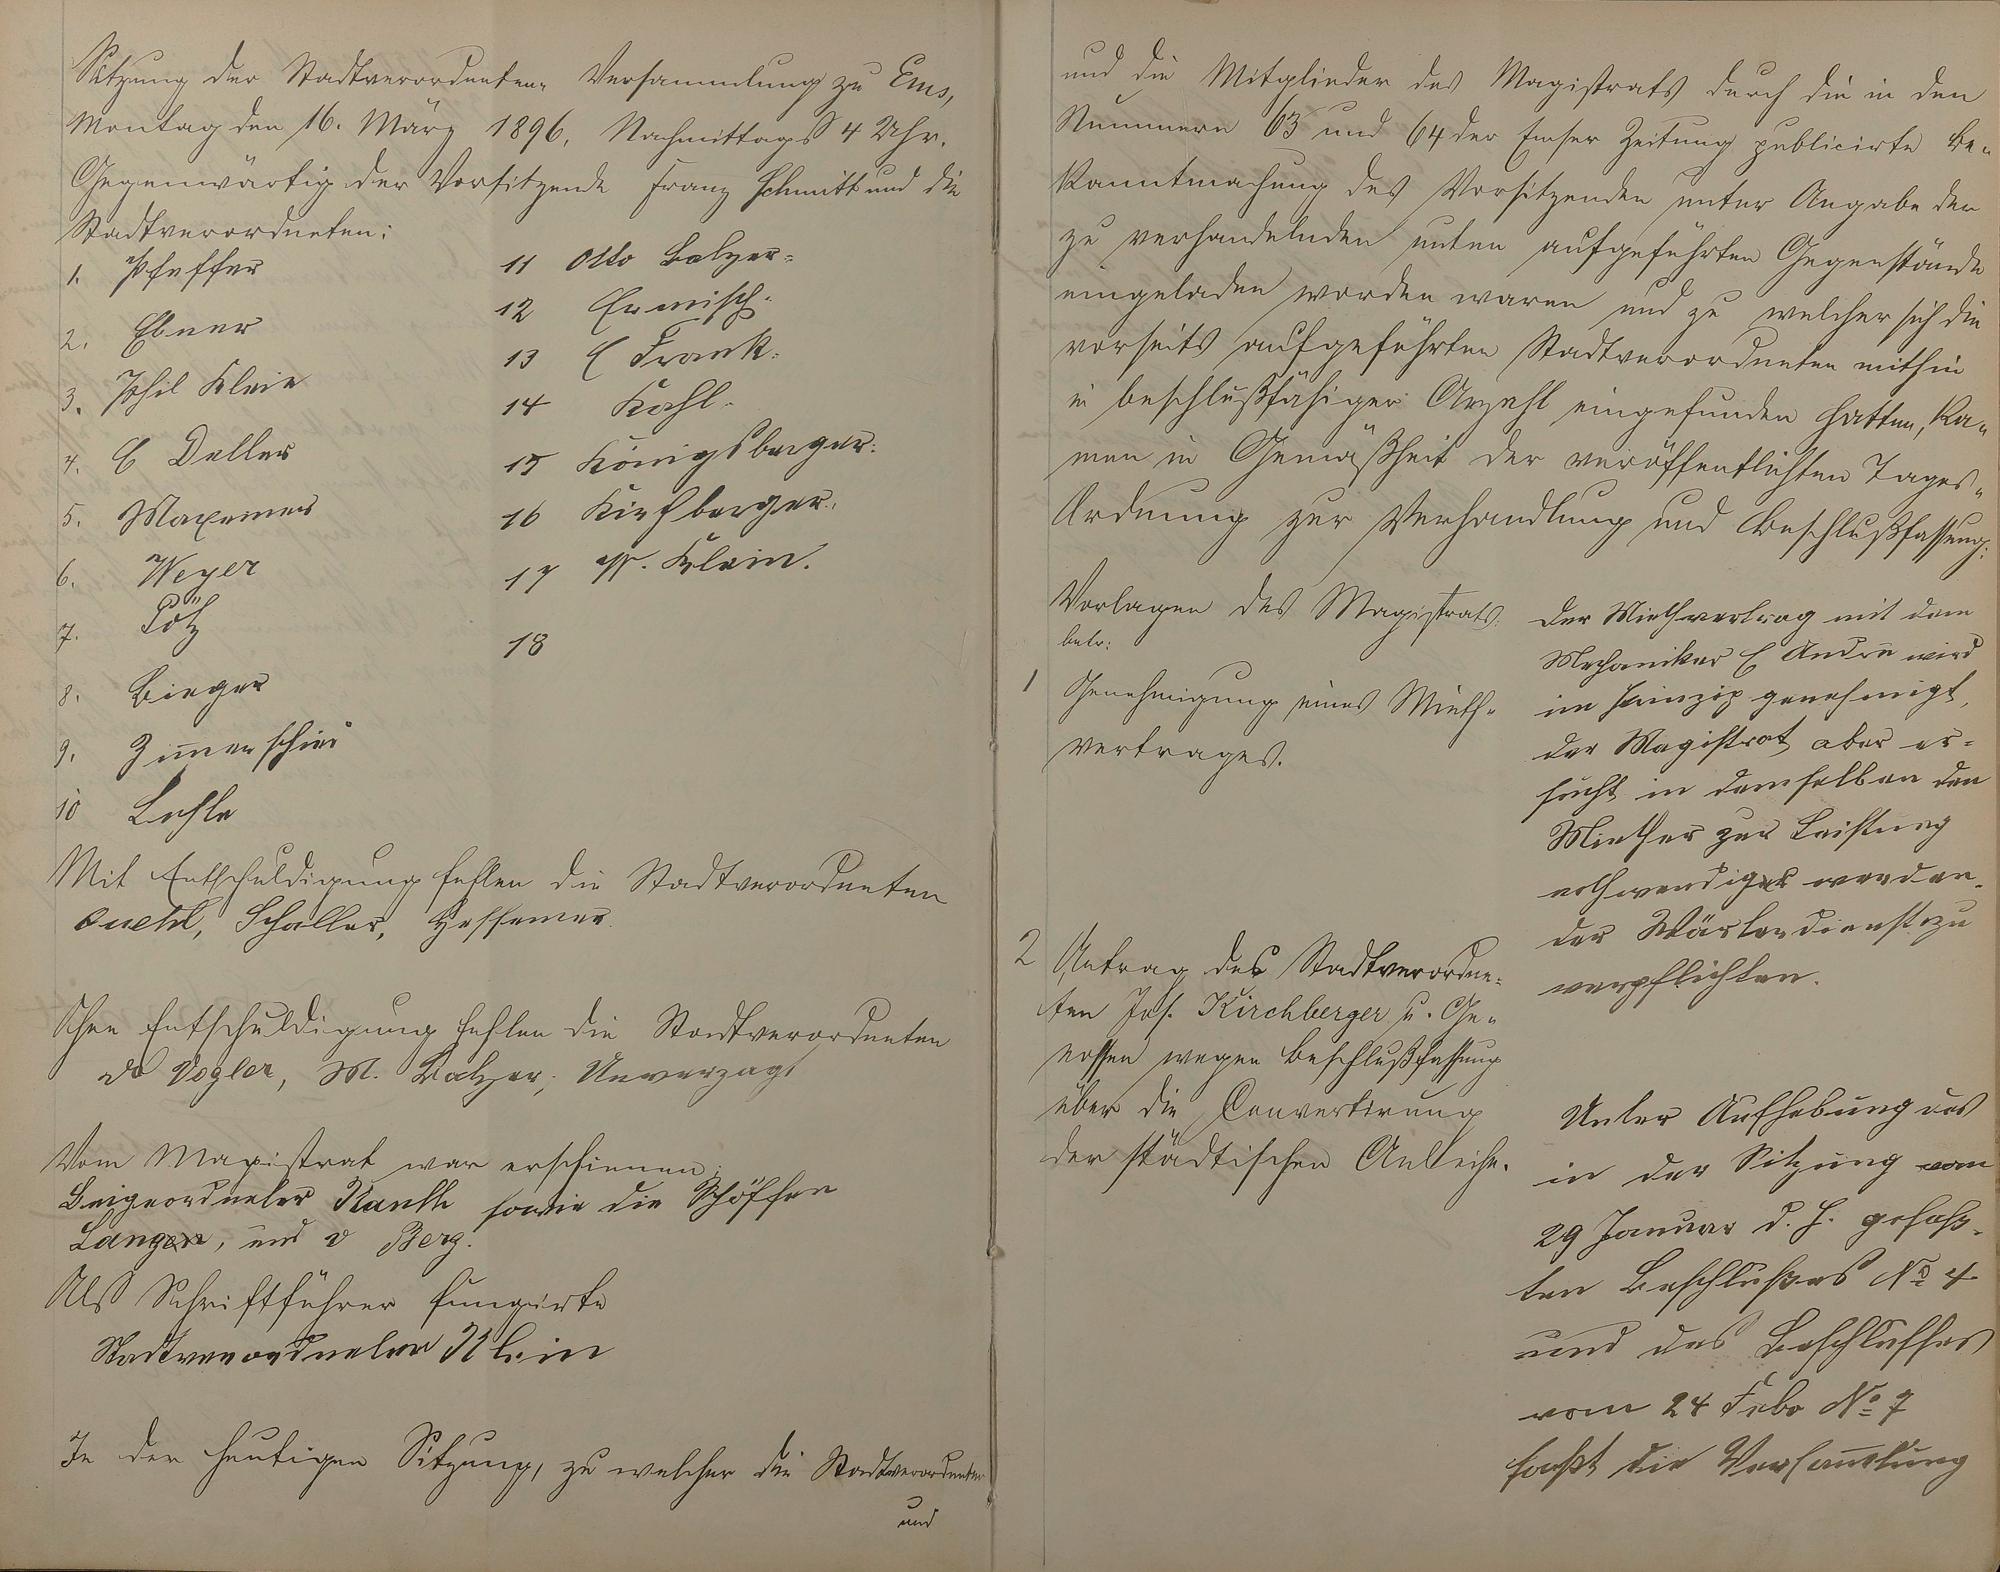 Sitzung der Stadtverordneten- Versammlung zu Ems,
Montag den 16. März 1896, Nachmittags 4 Uhr.
Gegenwärtig der Vorsitzende Franz Schmitt und die
Stadtverordneten:
1. Pfeffer
2. Ebner
3. Phil Klein
4. C Deller
5. Maxeiner
6. Weyer
7. Lötz
8. Bieger
9. Zimerschied
10 Lehle
11 Otto Balzer
12 Ermisch.
13 C Frank.
14 Kahl.
15 Königsberger.
16 Kirchberger.
17 W. Klein.
18
Mit Entschuldigung fehlen die Stadtverordneten
Schaller, Heffemer.
Ohne Entschuldigung fehlen die Stadtverordneten
Vogler, M. Balzer, Unverzagt
Vom Magistrat war erschienen:
Beigeordneter Kauth sowie die Schöffen
Langen, und v Berg.
Als Schriftführer fungirte
Stadtverordneter Klein
In der heutigen Sitzung, zu welcher die Stadtverordneten
und
und die Mitglieder des Magistrats durch die in den
Nummern 63 und 64 der Emser Zeitung publicirte Be-
kanntmachung des Vorsitzenden unter Angabe der
zu verhandelnden unten aufgeführten Gegenstände
eingeladen worden waren und zu welcher sich die
vorseits aufgeführten Stadtverordneten mithin
in beschlußfähiger Anzahl eingefunden hatten, ka-
men in Gemäßheit der veröffentlichten Tages-
Ordnung zur Verhandlung und Beschlußfassung:
Vorlagen des Magistrats
betr:
1 Genehmigung eines Mieth-
vertrages.
Der Miethvertrag mit dem
Mechaniker C André wird
im Prinzip genehmigt,
der Magistrat aber er-
sucht in demselben den
Miether zur Leistung
nothwendig werden-
der Wärterdienste zu
verpflichten.
2 Antrag des Stadtverordne-
ten Jos. Kirchberger u. Ge-
nossen wegen Beschlußfassung
über die Convertirung
der städtischen Anleihe.
Unter Aufhebung des
in der Sitzung vom
29 Januar d. J. gefaß-
ten Beschlußes No 4
und des Beschlusses
vom 24 Febr No 7
faßt die Versam̅lung